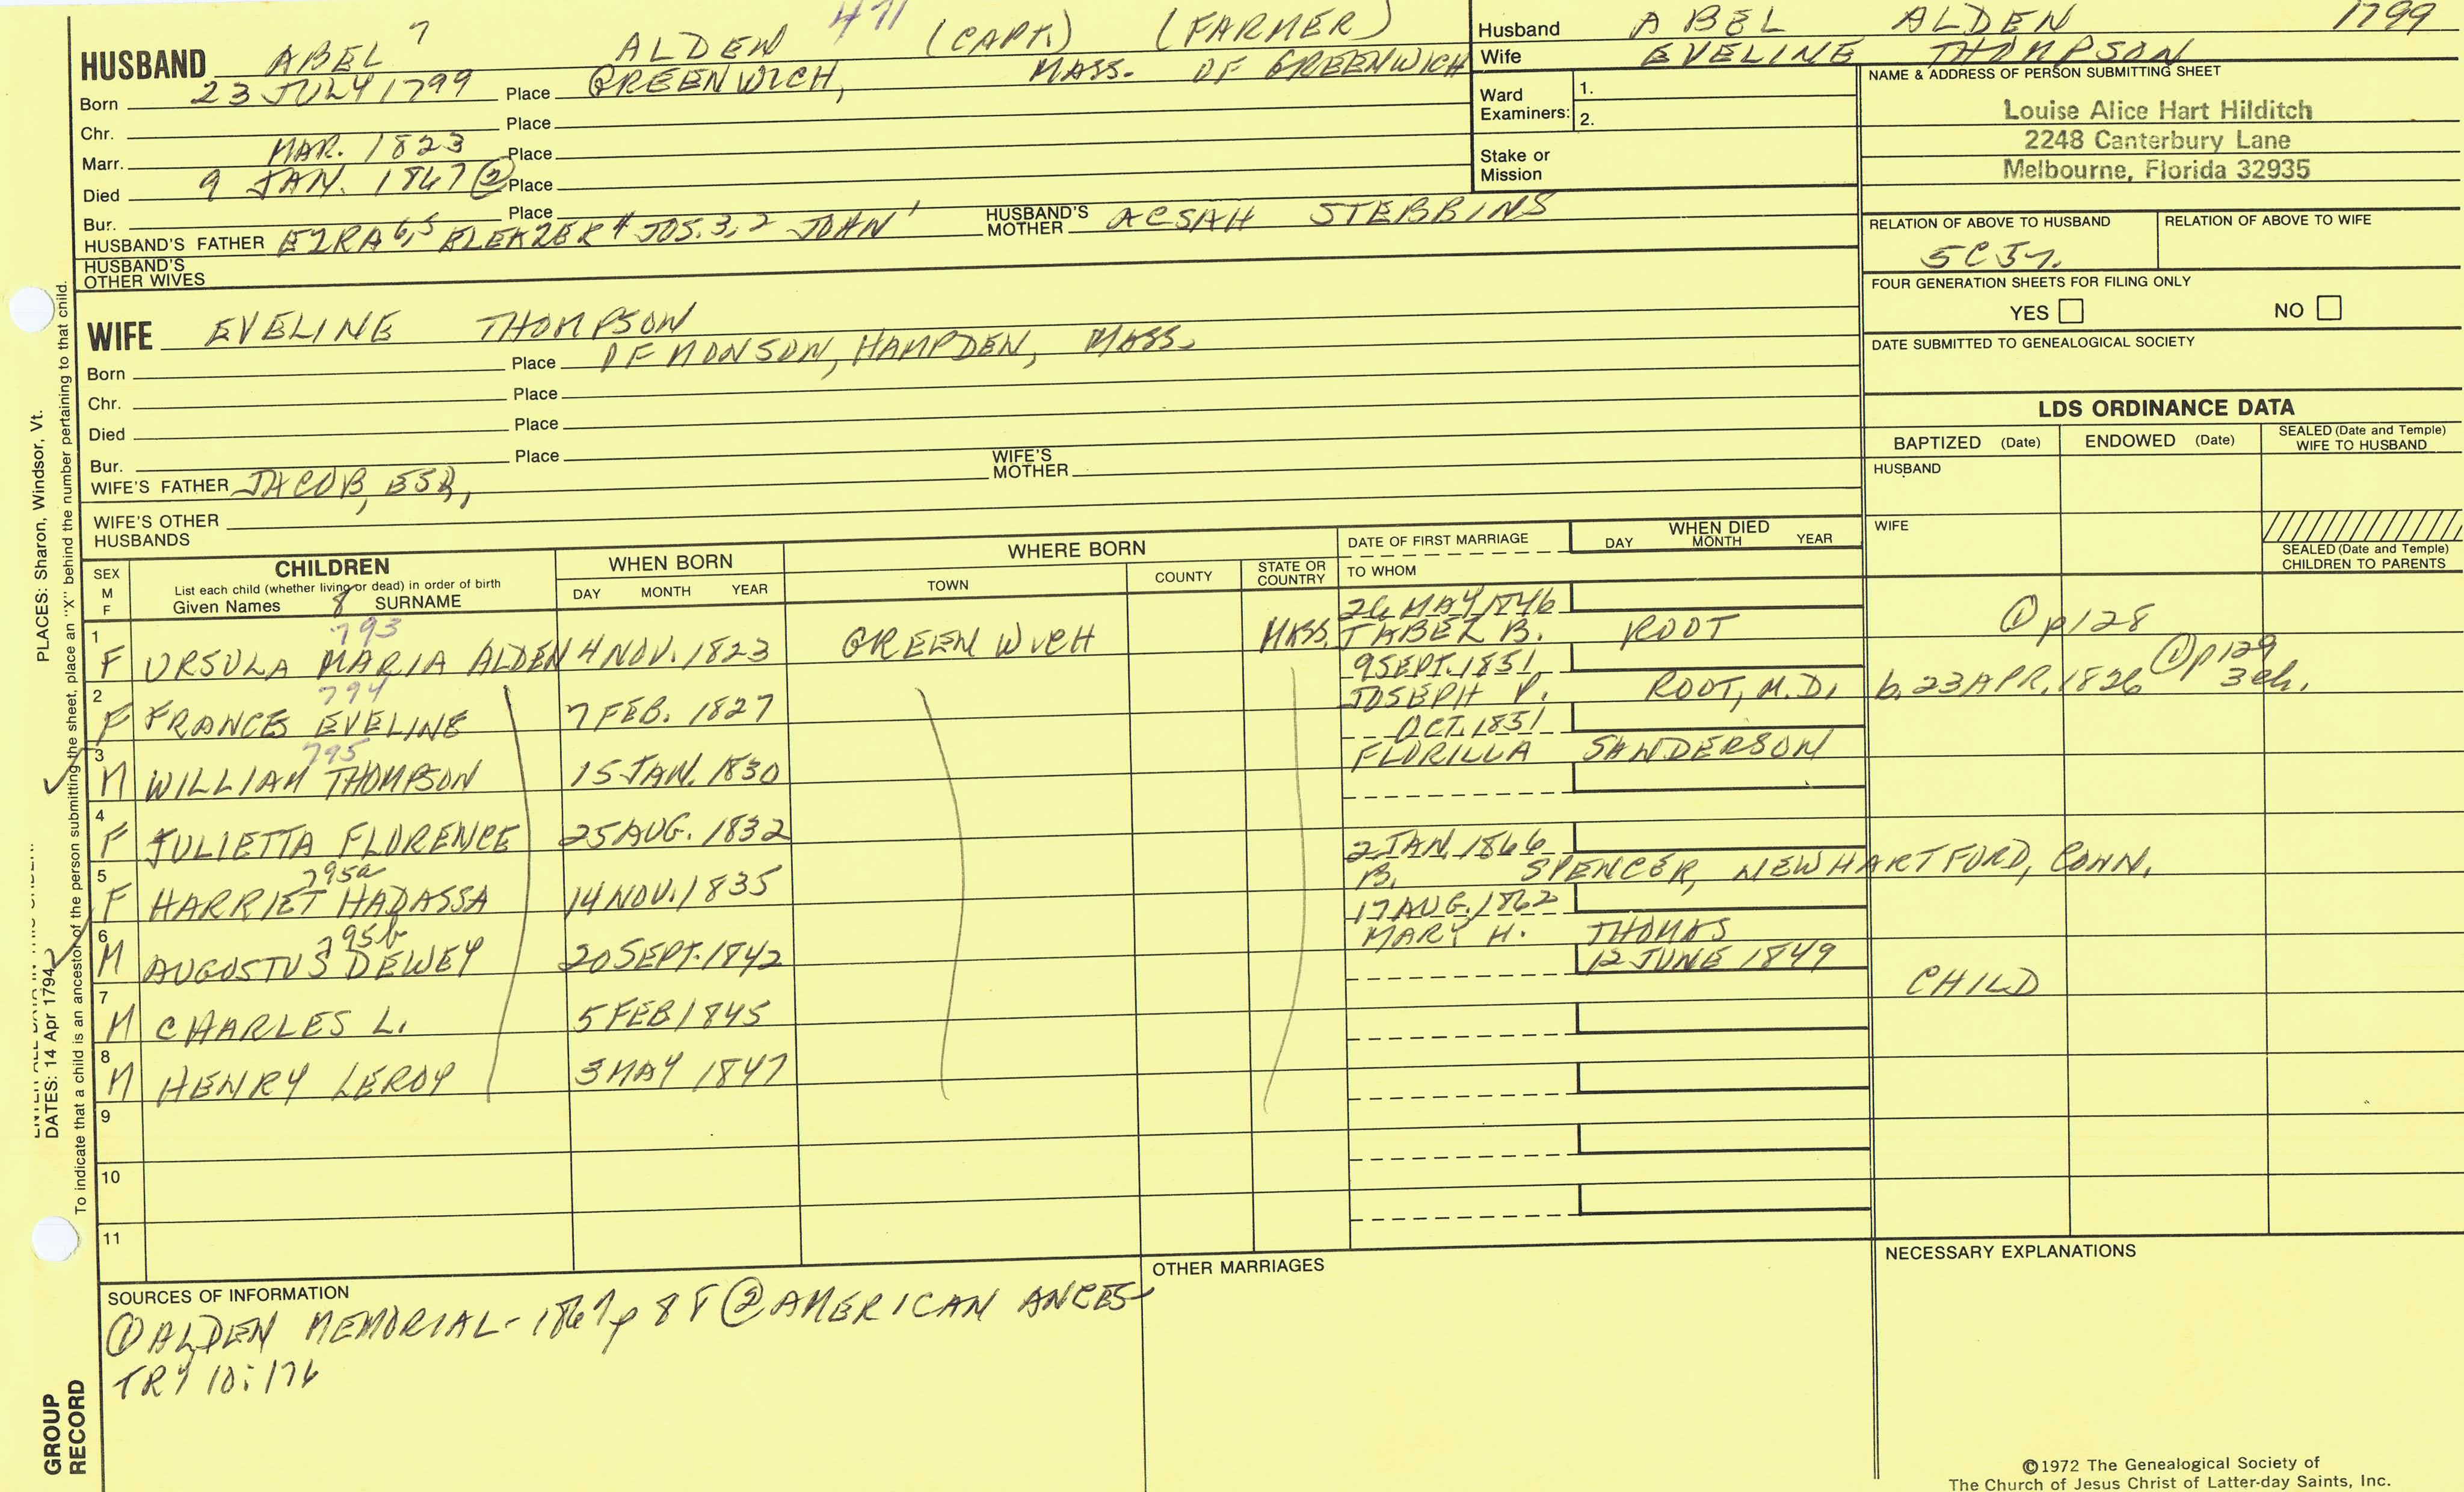 HUSBAND ABEL 7 ALDEN 471 (CAPT.) (FARMER)
Born 23 JULY 1799 Place GREENWICH, MASS. OF GREENWICH
Chr. Place
Marr. MAR. 1823 Place
Died 9 JAN. 1867 ② Place
Bur. Place
HUSBAND'S FATHER EZRA 6,5 ELEAZER 4 JOS. 3,2 JOHN 1 HUSBAND'S MOTHER ACSAH STEBBINS
HUSBAND'S OTHER WIVES
Husband ABEL ALDEN 1799
Wife EVELINE THOMPSON
Ward Examiners: 1.
2.
Stake or Mission
NAME & ADDRESS OF PERSON SUBMITTING SHEET
Louise Alice Hart Hilditch
2248 Canterbury Lane
Melbourne, Florida 32935
RELATION OF ABOVE TO HUSBAND RELATION OF ABOVE TO WIFE
FOUR GENERATION SHEETS FOR FILING ONLY
YES NO
DATE SUBMITTED TO GENEALOGICAL SOCIETY
WIFE EVELINE THOMPSON
Born Place OF MONSON, HAMPDEN, MASS.
Chr. Place
Died Place
Bur. Place
WIFE'S FATHER JACOB, ESQ, WIFE'S MOTHER
WIFE'S OTHER HUSBANDS
LDS ORDINANCE DATA
BAPTIZED (Date) ENDOWED (Date) SEALED (Date and Temple) WIFE TO HUSBAND
HUSBAND
WIFE
SEALED (Date and Temple) CHILDREN TO PARENTS
SEX M F
CHILDREN
List each child (whether living or dead) in order of birth
Given Names 8 SURNAME
WHEN BORN
DAY MONTH YEAR
WHERE BORN
TOWN COUNTY STATE OR COUNTRY
DATE OF FIRST MARRIAGE
TO WHOM
WHEN DIED
DAY MONTH YEAR
793 26 MAY 1846
1 F URSULA MARIA ALDEN 4 NOV. 1823 GREENWICH MASS. JABEZ B. ROOT ① p128
794 9 SEPT. 1851
2 F FRANCES EVELINE 7 FEB. 1827 JOSEPH P. ROOT, M.D. b. 23 APR. 1826 ① p129 3 ch.
795 OCT. 1851
3 M WILLIAM THOMPSON 15 JAN. 1830 FLORILLA SANDERSON
4 F JULIETTA FLORENCE 25 AUG. 1832
795a 2 JAN. 1866
5 F HARRIET HADASSA 14 NOV. 1835 B. SPENCER, NEW HARTFORD, CONN.
795b 17 AUG. 1862
6 M AUGUSTUS DEWEY 20 SEPT. 1842 MARY H. THOMAS
7 M CHARLES L. 5 FEB 1845 12 JUNE 1849 CHILD
8 M HENRY LEROY 3 MAY 1847
9
10
11
SOURCES OF INFORMATION
① ALDEN MEMORIAL - 1867 p 88 ② AMERICAN ANCES-
TRY 10:176
OTHER MARRIAGES
NECESSARY EXPLANATIONS
©1972 The Genealogical Society of
The Church of Jesus Christ of Latter-day Saints, Inc.
PLACES: Sharon, Windsor, Vt.
DATES: 14 Apr 1794
To indicate that a child is an ancestor of the person submitting the sheet, place an "X" behind the number pertaining to that child.
GROUP
RECORD